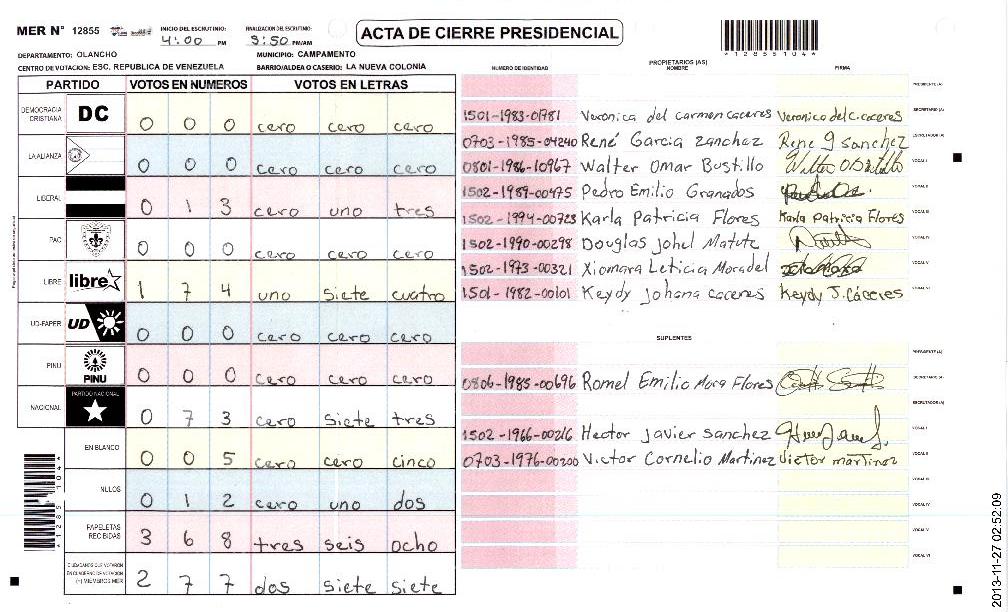 MER N° 12855 INICIO DEL ESCRUTINIO: 4:00 PM FINALIZACION DEL ESCRUTINIO: 9:50 PM/AM ACTA DE CIERRE PRESIDENCIAL
DEPARTAMENTO: OLANCHO MUNICIPIO: CAMPAMENTO
CENTRO DE VOTACION: ESC. REPUBLICA DE VENEZUELA BARRIO/ALDEA O CASERIO: LA NUEVA COLONIA
PARTIDO VOTOS EN NUMEROS VOTOS EN LETRAS
DEMOCRACIA CRISTIANA DC 0 0 0 cero cero cero
LA ALIANZA 0 0 0 cero cero cero
LIBERAL 0 1 3 cero uno tres
PAC 0 0 0 cero cero cero
LIBRE libre 1 7 4 uno siete cuatro
UD-FAPER UD 0 0 0 cero cero cero
PINU PINU 0 0 0 cero cero cero
NACIONAL PARTIDO NACIONAL 0 7 3 cero siete tres
EN BLANCO 0 0 5 cero cero cinco
NULOS 0 1 2 cero uno dos
PAPELETAS RECIBIDAS 3 6 8 tres seis ocho
CIUDADANOS QUE VOTARON EN CUADERNO DE VOTACION (+) MIEMBROS MER 2 7 7 dos siete siete
*12855104*
PROPIETARIOS (AS)
NUMERO DE IDENTIDAD NOMBRE FIRMA
PRESIDENTE (A)
1501-1983-01781 Veronica del carmen caceres Veronica del c. caceres SECRETARIO (A)
0703-1985-04240 René Garcia zanchez Rene g sanchez ESCRUTADOR (A)
0801-1986-10967 Walter Omar Bustillo VOCAL I
1502-1989-00475 Pedro Emilio Granados VOCAL II
1502-1994-00723 Karla Patricia Flores Karla Patricia Flores VOCAL III
1502-1990-00298 Douglas Johel Matute VOCAL IV
1502-1973-00321 Xiomara Leticia Moradel VOCAL V
1501-1982-00101 Keydy Johana caceres Keydy J. Cáceres VOCAL VI
SUPLENTES
PRESIDENTE (A)
0806-1985-00696 Romel Emilio Mora Flores SECRETARIO (A)
ESCRUTADOR (A)
1502-1966-00216 Hector Javier sanchez VOCAL I
0703-1976-00200 Victor Cornelio Martinez victor martinez VOCAL II
VOCAL III
VOCAL IV
VOCAL V
VOCAL VI
2013-11-27 02:52:09